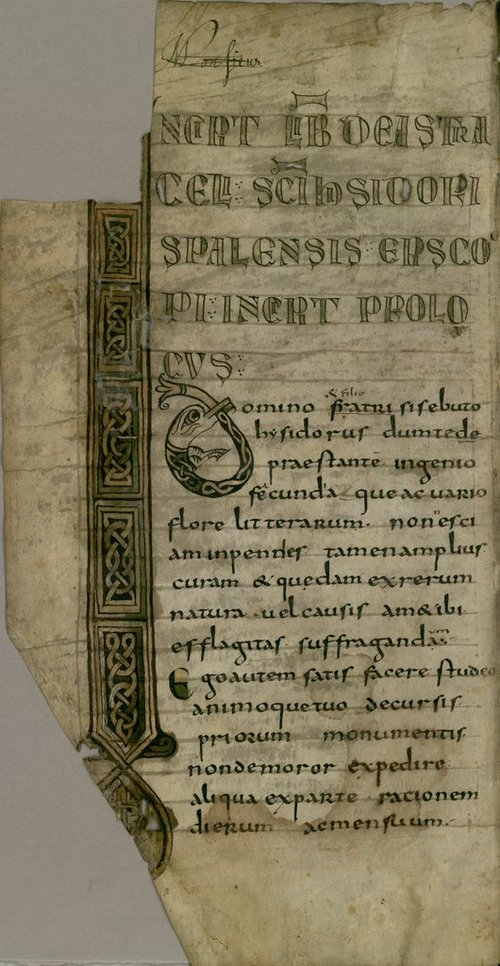 Monsieur
NCIPIT LIB DE ASTRA
CELI: SCI hSIDORI
SPALENSIS EPISCO
PI: INCIPIT PROLO
GVS:
& filio
Domino fratri sisebuto
hysidorus dumtede
praestante ingenio
fecunda que ac uario
flore litterarum. non esci
am inpendes tamen amplius
curam & quedam ex rerum
natura. uel causis am & ibi
efflagitas suffraganda
Ego autem satis facere studeo
animoque tuo decursis
priorum monumentis
non demoror expedire
aliqua ex parte racionem
dierum ac mensium.